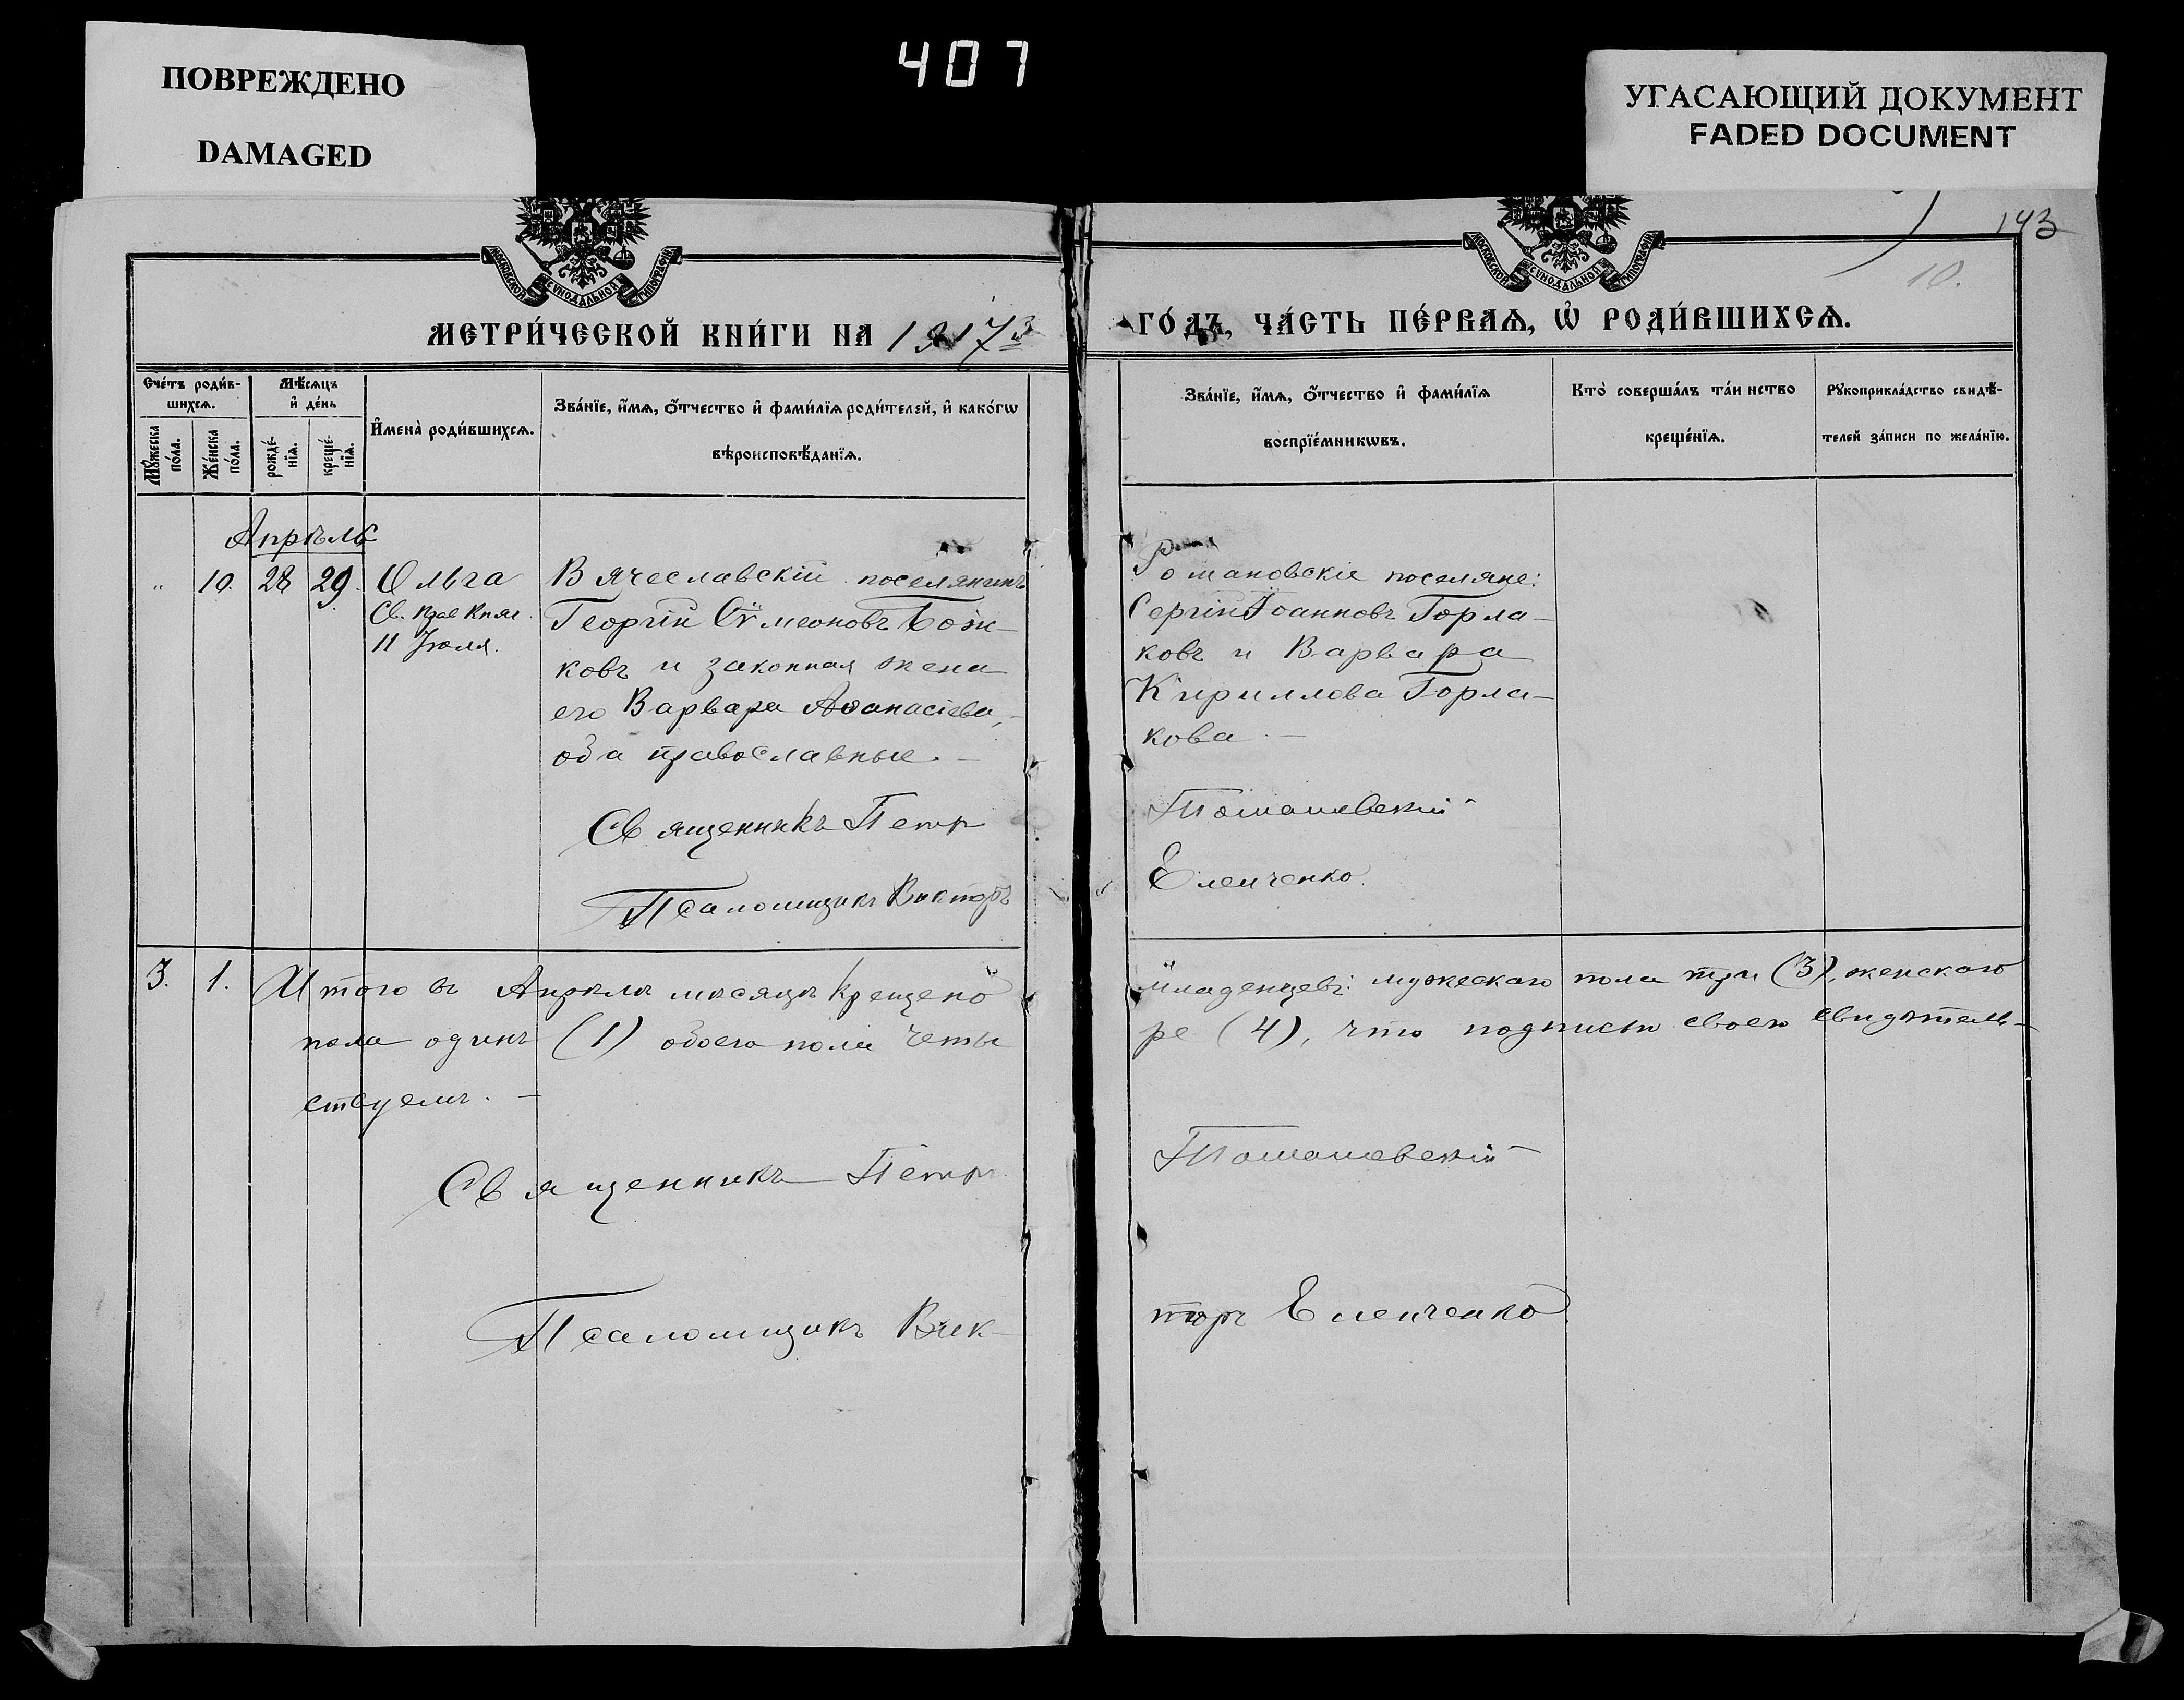 ПОВРЕЖДЕНО
DAMAGED
407
УГАСАЮЩИЙ ДОКУМЕНТ
FADED DOCUMENT
143
10.
МОСКОВСКОЙ СѴНОДАЛЬНОЙ ТИПОГРАФІИ
МОСКОВСКОЙ СѴНОДАЛЬНОЙ ТИПОГРАФІИ
МЕТРИ́ЧЕСКОЙ КНИ́ГИ НА 1917й
ГО́ДЪ, ЧА́СТЬ ПЕ́РВАѦ, Ѡ҆ РОДИ́ВШИХСѦ.
Сче́тъ роди́в-
шихсѧ.
Мѣ́сѧцъ
и҆ де́нь
Мꙋ́жеска
по́ла.
Же́нска
по́ла.
рожде́-
нїѧ.
креще́-
нїѧ.
И҆мена̀ роди́вшихсѧ.
Зва́нїе, и҆́мѧ, ѻ҆́тчество и҆ фами́лїѧ роди́телей, и҆ како́гѡ
вѣроисповѣ́данїѧ.
Зва́нїе, и҆́мѧ, ѻ҆́тчество и҆ фами́лїѧ
воспрїе́мникѡвъ.
Кто̀ соверша́лъ та́инство
креще́нїѧ.
Рꙋкоприкла́дство свидѣ́-
телей за́писи по жела́нїю.
Апрѣль
" 10. 28 29. Ольга
Св. Рав Княг.
11 Іюля.
Вячеславскій поселянинъ
Георгій Сѵмеоновъ Бож-
ковъ и законная жена
его Варвара Аѳанасіева,
оба православные. –
Священникъ Петръ
Псаломщикъ Викторъ
Романовскіе поселяне:
Сергій Іоанновъ Горла-
ковъ и Варвара
Кириллова Горла-
кова. –
Томашевскій
Еленченко.
3. 1. Итого въ Апрѣлѣ мѣсяцѣ крещено
младенцевъ: мужескаго пола три (3), женскаго
пола одинъ (1) обоего пола четы
ре (4), что подписью своею свидѣтель-
ствуемъ. –
Священникъ Петръ
Томашевскій
Псаломщикъ Вик-
торъ Еленченко